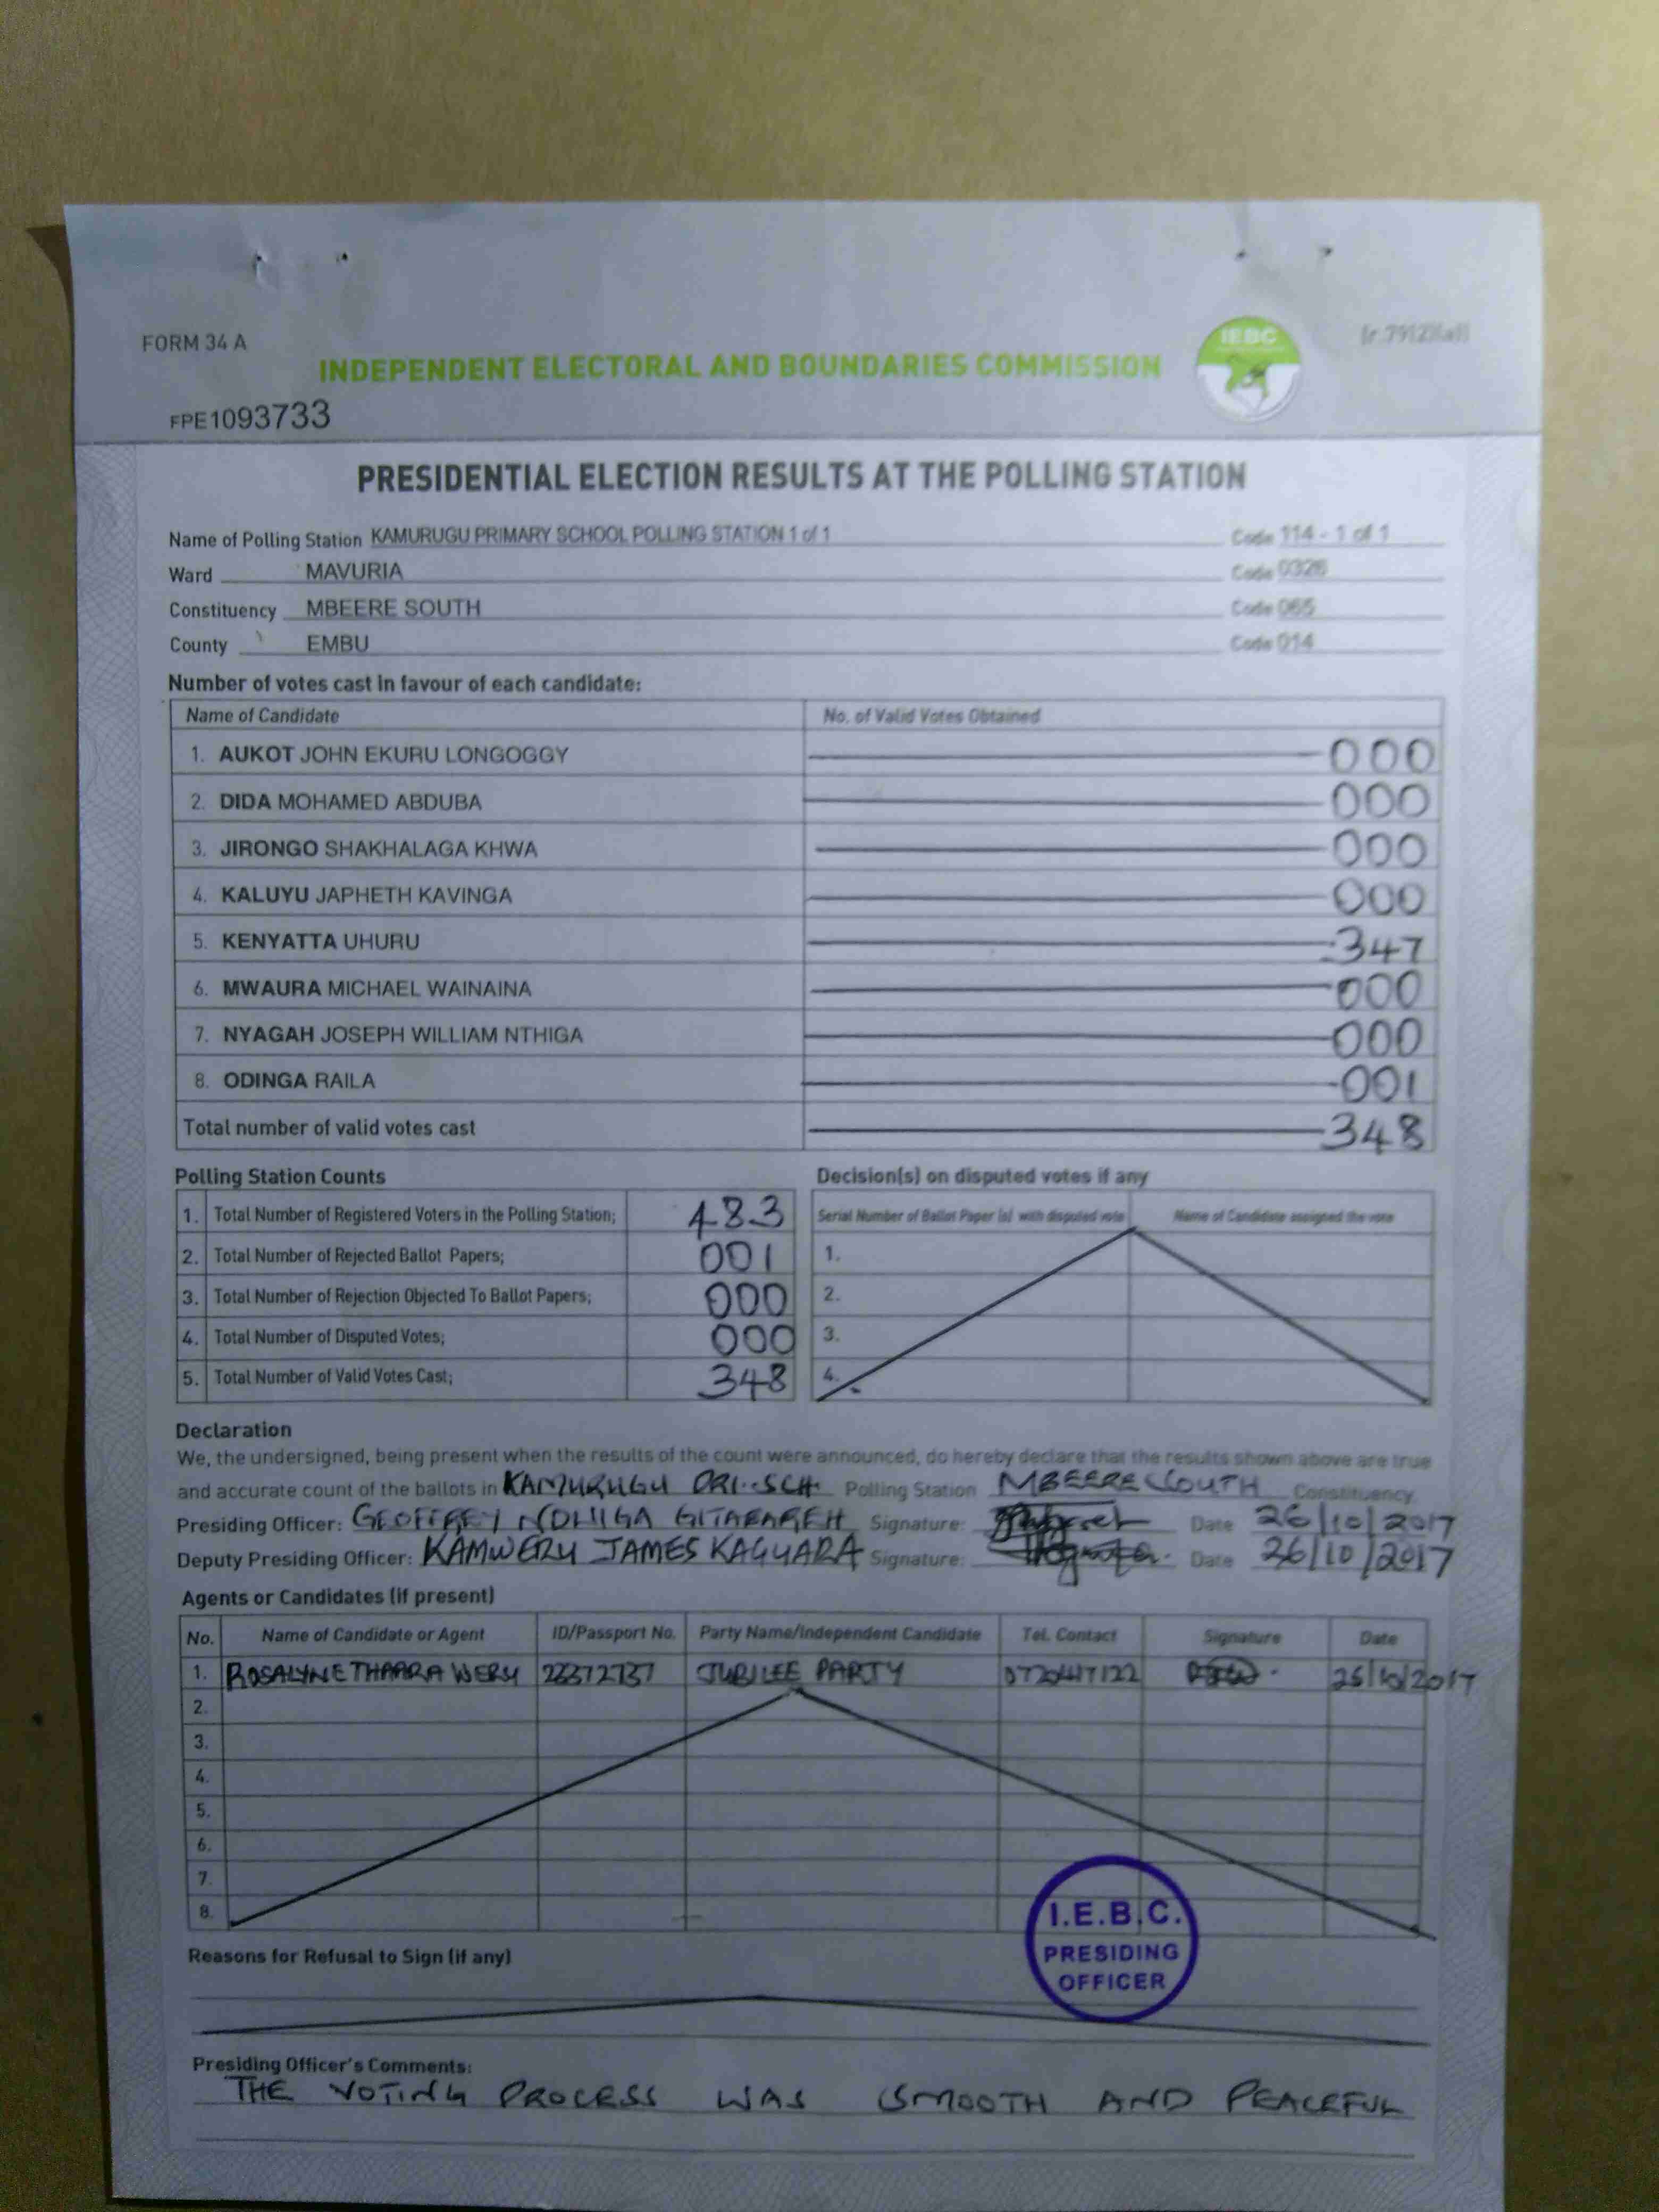 FORM 34 A
IEBC
INDEPENDENT ELECTORAL AND BOUNDARIES COMMISSION
FPE1093733
PRESIDENTIAL ELECTION RESULTS AT THE POLLING STATION
Name of Polling Station KAMURUGU PRIMARY SCHOOL POLLING STATION 1 of 1 Code 114 - 1 of 1
Ward MAVURIA Code 0326
Constituency MBEERE SOUTH Code 065
County EMBU Code 014
Number of votes cast in favour of each candidate:
Name of Candidate No. of Valid Votes Obtained
1. AUKOT JOHN EKURU LONGOGGY 000
2. DIDA MOHAMED ABDUBA 000
3. JIRONGO SHAKHALAGA KHWA 000
4. KALUYU JAPHETH KAVINGA 000
5. KENYATTA UHURU 347
6. MWAURA MICHAEL WAINAINA 000
7. NYAGAH JOSEPH WILLIAM NTHIGA 000
8. ODINGA RAILA 001
Total number of valid votes cast 348
Polling Station Counts
1. Total Number of Registered Voters in the Polling Station; 483
2. Total Number of Rejected Ballot Papers; 001
3. Total Number of Rejection Objected To Ballot Papers; 000
4. Total Number of Disputed Votes; 000
5. Total Number of Valid Votes Cast; 348
Decision(s) on disputed votes if any
Serial Number of Ballot Paper (s) with disputed vote Name of Candidate assigned the vote
1.
2.
3.
4.
Declaration
We, the undersigned, being present when the results of the count were announced, do hereby declare that the results shown above are true
and accurate count of the ballots in KAMURUGU PRI. SCH. Polling Station MBEERE SOUTH Constituency
Presiding Officer: GEOFFREY Signature: Date 26/10/2017
Deputy Presiding Officer: KAMWERU JAMES KAGUARA Signature: Date 26/10/2017
Agents or Candidates (if present)
No. Name of Candidate or Agent ID/Passport No. Party Name/Independent Candidate Tel. Contact Signature Date
1. ROSALYNE WERU JUBILEE PARTY
2.
3.
4.
5.
6.
7.
8.
I.E.B.C.
PRESIDING
OFFICER
Reasons for Refusal to Sign (if any)
Presiding Officer's Comments:
THE VOTING PROCESS WAS SMOOTH AND PEACEFUL